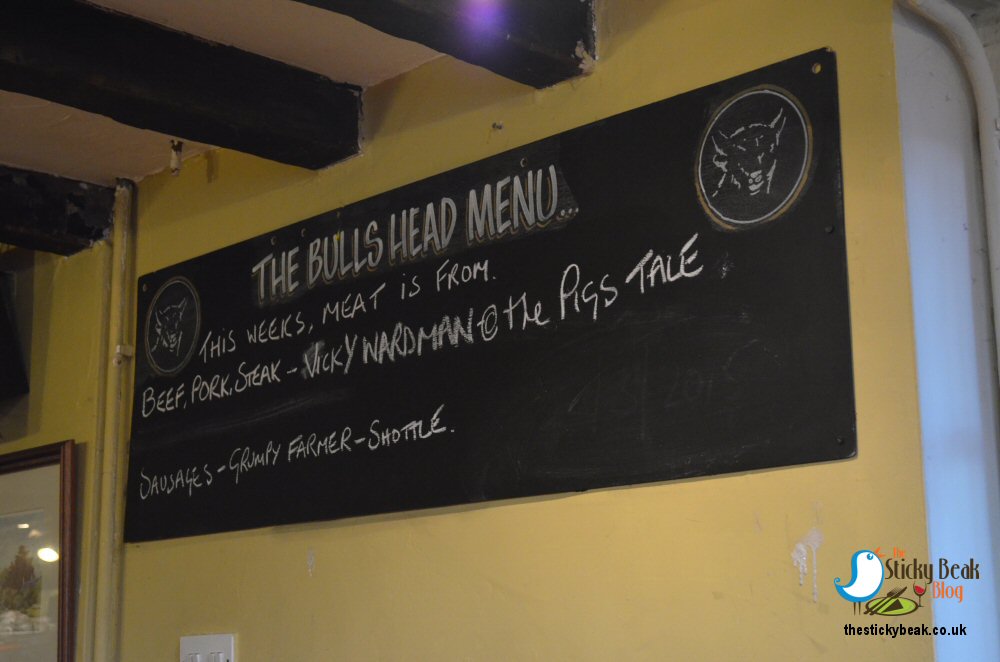 THE BULLS HEAD MENU...
THIS WEEKS, MEAT IS FROM.
BEEF, PORK, STEAK - VICKY WARDMAN @ the PIGS TALE
SAUSAGES - GRUMPY FARMER - SHOTTLE.
The
Sticky Beak
Blog
thestickybeak.co.uk